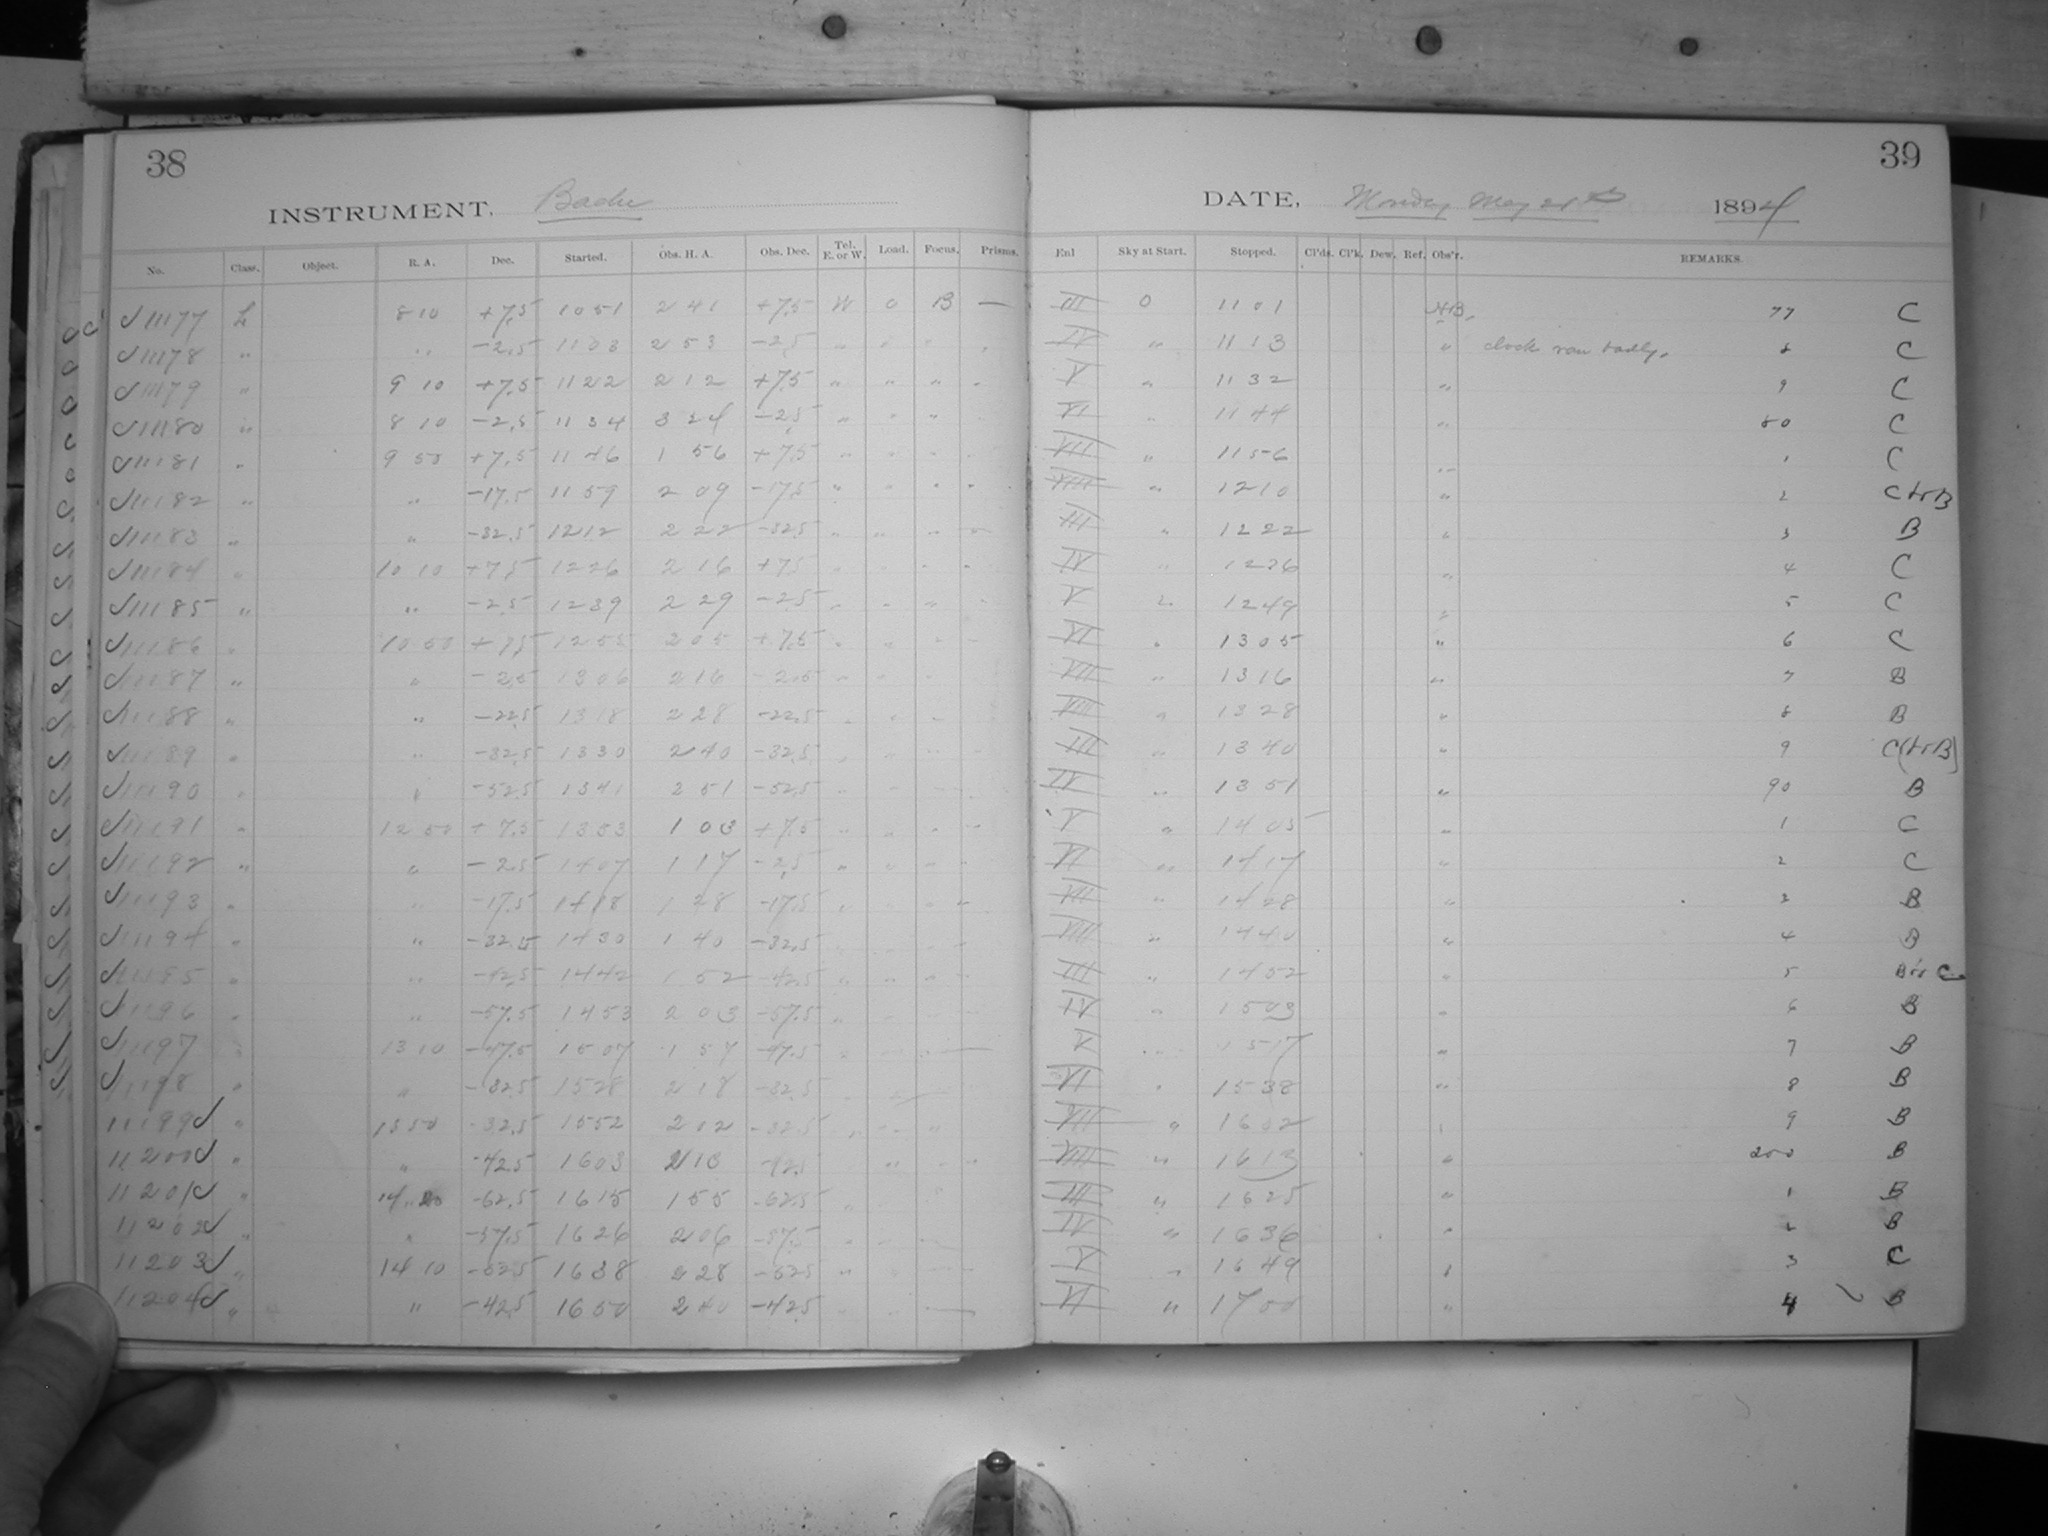 38
INSTRUMENT, Bache
No. Class. Object. R. A. Dec. Started. Obs. H. A. Obs. Dec. Tel. E. or W. Load. Focus. Prisms.
11177 L 8 10 +7.5 10 51 2 41 +7.5 W 0 B —
11178 " " -2.5 11 03 2 53 -2.5 " " " "
11179 " 9 10 +7.5 11 22 2 12 +7.5 " " " "
11180 " 8 10 -2.5 11 34 3 24 -2.5 " " " "
11181 " 9 50 +7.5 11 46 1 56 +7.5 " " " "
11182 " " -17.5 11 59 2 09 -17.5 " " " "
11183 " " -32.5 12 12 2 22 -32.5 " " " "
11184 " 10 10 +7.5 12 26 2 16 +7.5 " " " "
11185 " " -2.5 12 39 2 29 -2.5 " " " "
11186 " 10 50 +7.5 12 55 2 05 +7.5 " " " "
11187 " " -2.5 13 06 2 16 -2.5 " " "
11188 " " -22.5 13 18 2 28 -22.5 " " "
11189 " " -32.5 13 30 2 40 -32.5 " " "
11190 " " -52.5 13 41 2 51 -52.5 " "
11191 " 12 50 +7.5 13 53 1 03 +7.5 " " " "
11192 " " -2.5 14 07 1 17 -2.5 " " " "
11193 " " -17.5 14 18 1 28 -17.5 " " " "
11194 " " -32.5 14 30 1 40 -32.5 " " "
11195 " " -42.5 14 42 1 52 -42.5 " " " "
11196 " " -57.5 14 53 2 03 -57.5 "
11197 " 13 10 -47.5 15 07 1 57 -47.5 "
11198 " " -32.5 15 28 2 18 -32.5
11199 " 13 50 -32.5 15 52 2 02 -32.5 " " "
11200 " " -42.5 16 03 2 13 -42.5 "
11201 " 14 20 -62.5 16 15 1 55 -62.5 "
11202 " " -57.5 16 26 2 06 -57.5 "
11203 " 14 10 -52.5 16 38 2 28 -52.5 "
11204 " " -42.5 16 50 2 40 -42.5 "
39
DATE, Monday May 21st 1894
Enl Sky at Start. Stopped. Cl'ds. Cl'k. Dew. Ref. Obs'r. REMARKS.
III 0 11 01 77 C
IV " 11 13 " clock ran badly. 8 C
V " 11 32 " 9 C
VI " 11 44 " 80 C
VII " 11 56 " 1 C
VIII " 12 10 " 2 C to B
III " 12 22 " 3 B
IV " 12 36 " 4 C
V " 12 49 " 5 C
VI " 13 05 " 6 C
VII " 13 16 " 7 B
VIII " 13 28 " 8 B
III " 13 40 " 9 C (to B)
IV " 13 51 " 90 B
V " 14 05 " 1 C
VI " 14 17 " 2 C
VII " 14 28 " 2 B
VIII " 14 40 " 4 B
III " 14 52 " 5 B to C
IV " 15 03 " 6 B
V " 15 17 " 7 B
VI " 15 38 " 8 B
VII " 16 02 " 9 B
VIII " 16 13 " 200 B
III " 16 25 " 1 B
IV " 16 36 " 2 B
V " 16 49 " 3 C
VI " 17 00 " 4 B